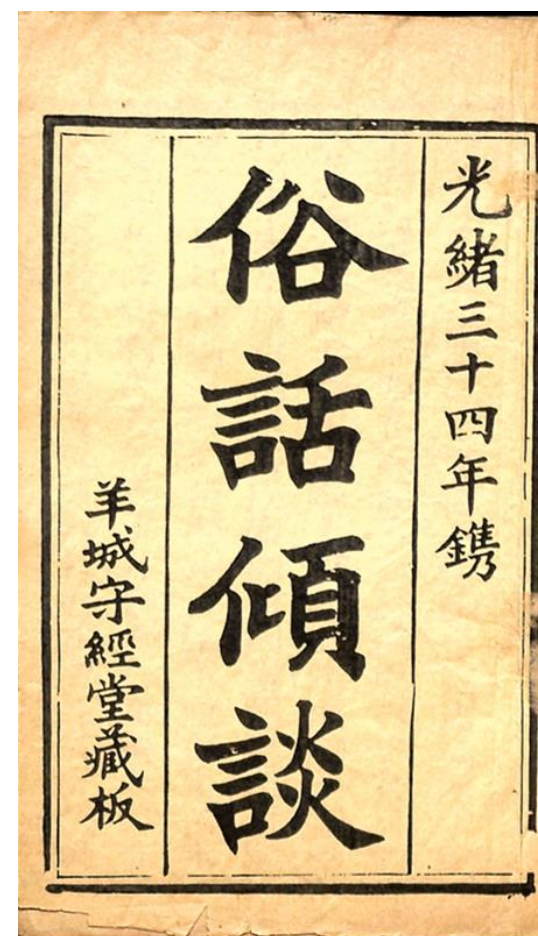 光緒三十四年鐫
俗話傾談
羊城守經堂藏板